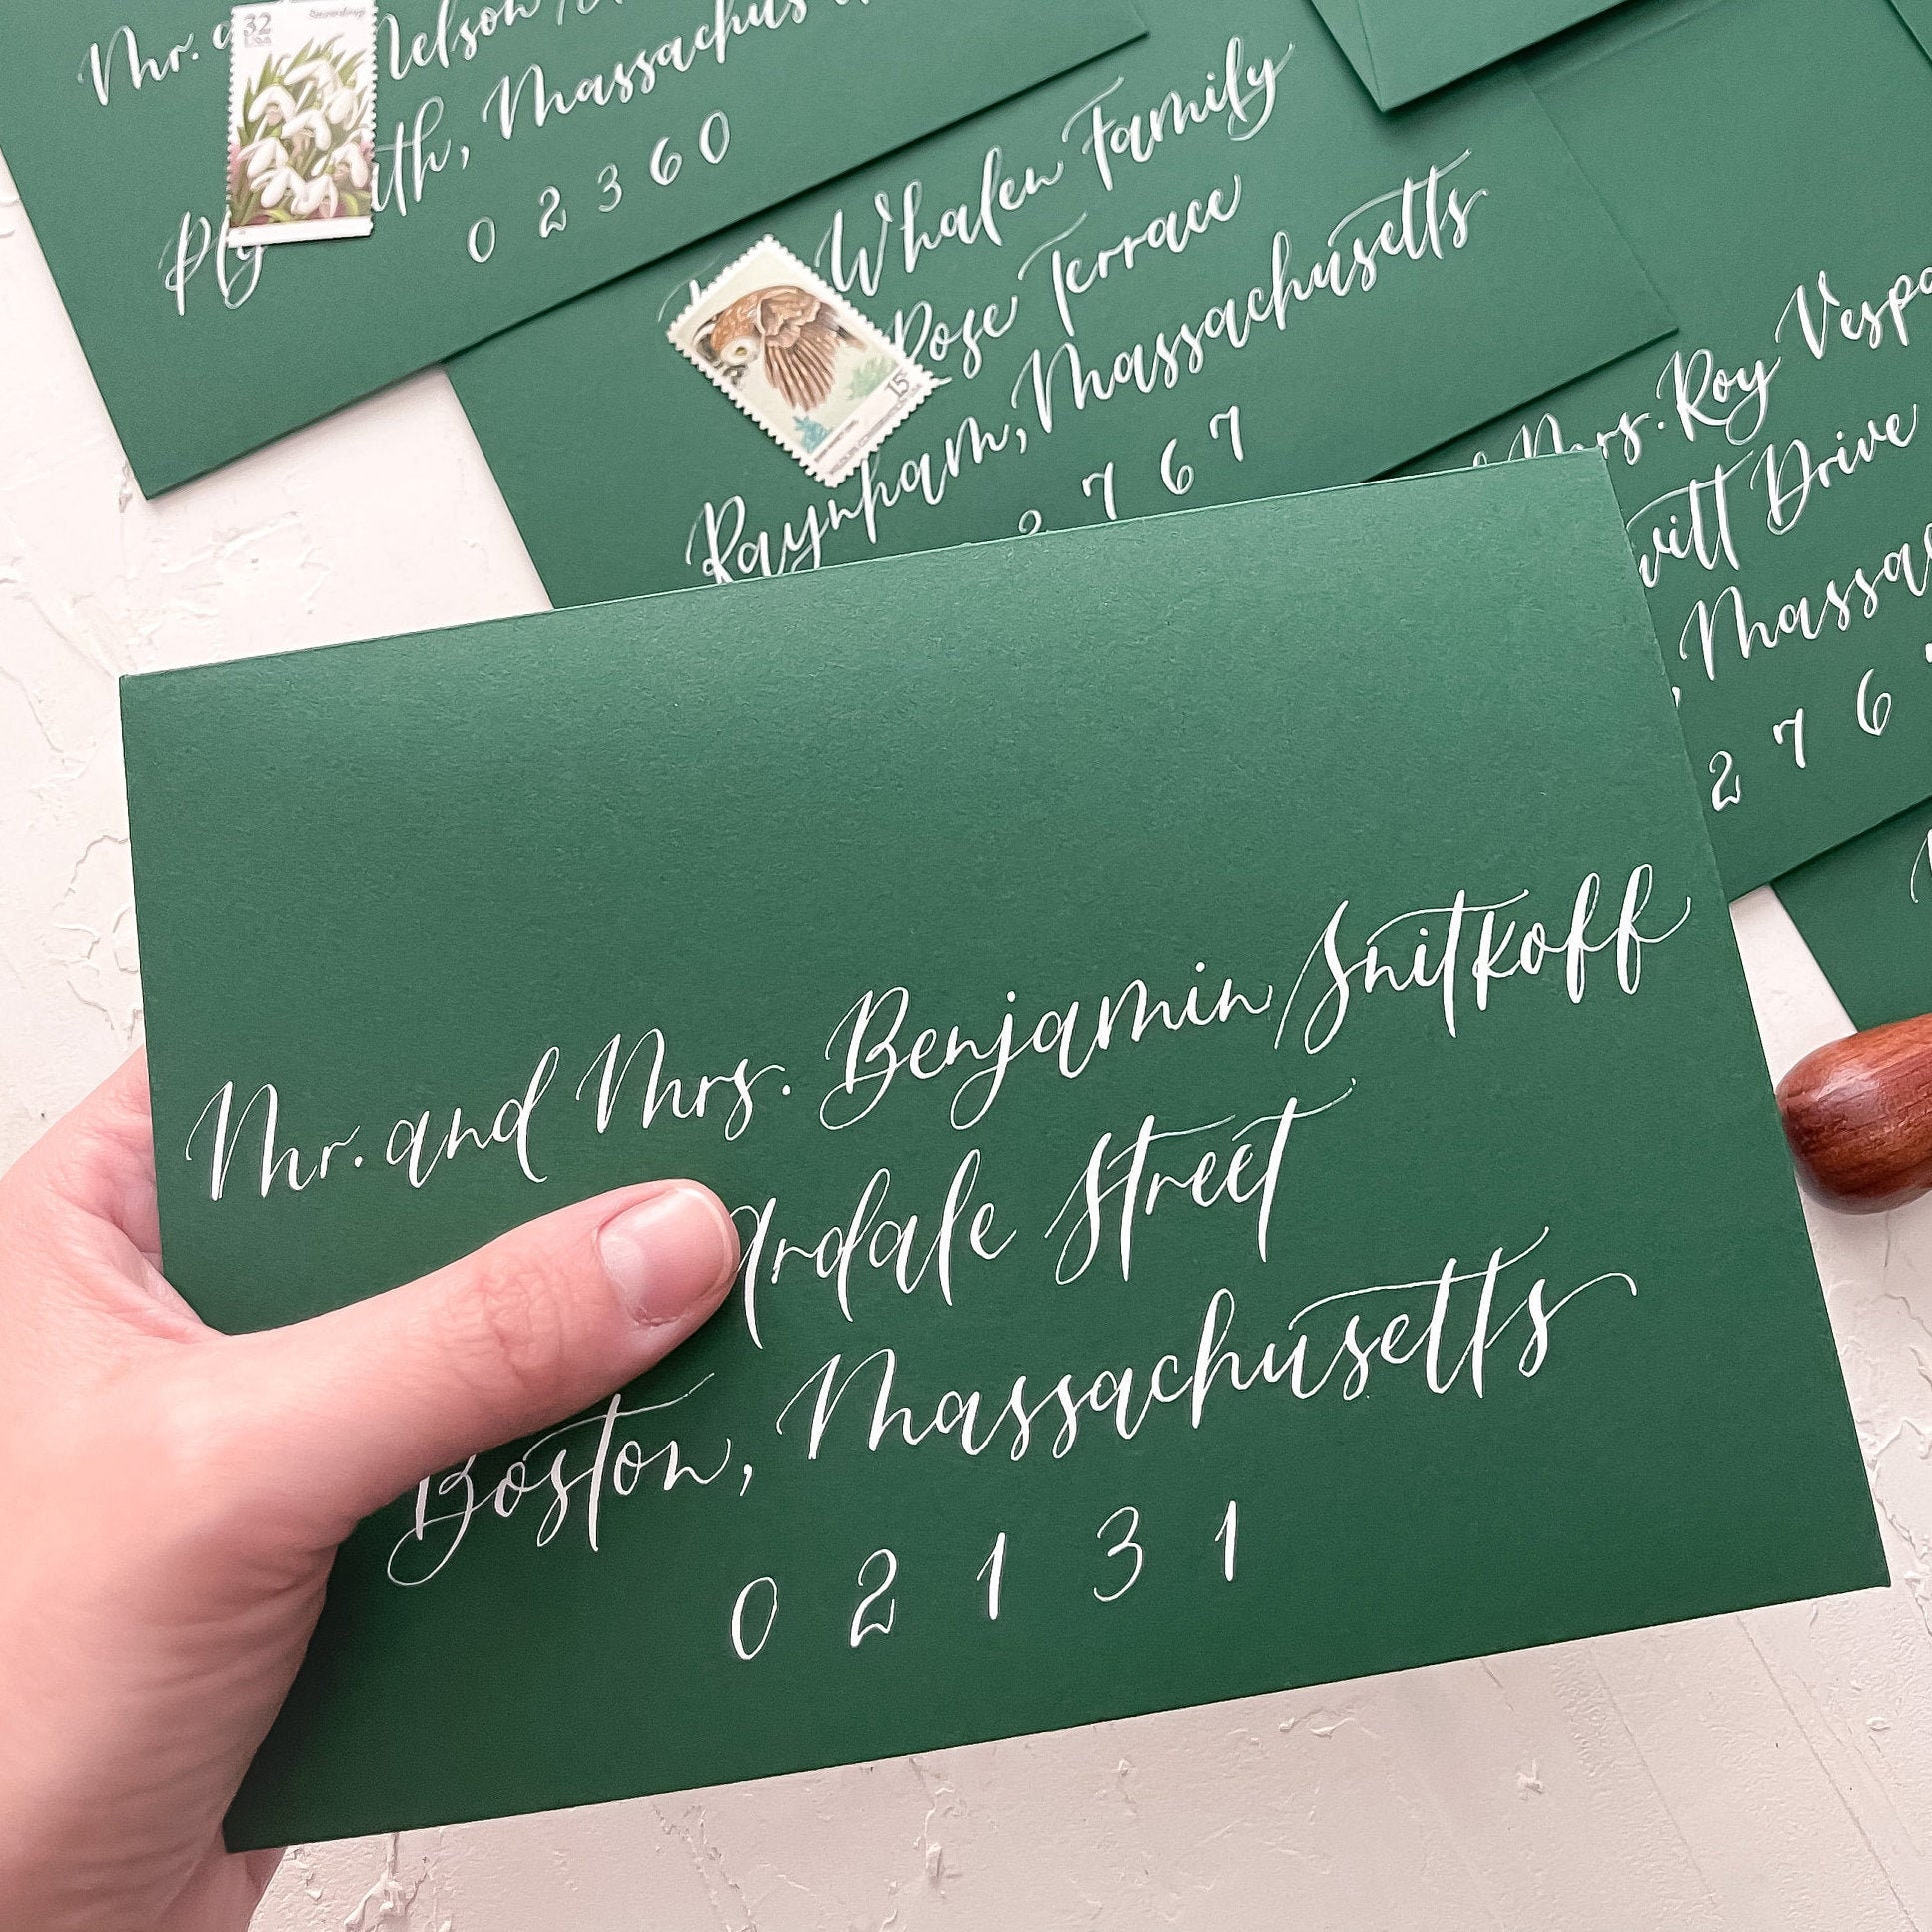 Mr.
Nelson
Massachus
0 2 3 6 0
32
USA
Whalen Family
Rose Terrace
Raynham, Massachusetts
2 7 6 7
15¢
Mrs. Roy
Drive
2 7 6
Mr. and Mrs. Benjamin Snitkoff
ardale Street
Boston, Massachusetts
0 2 1 3 1